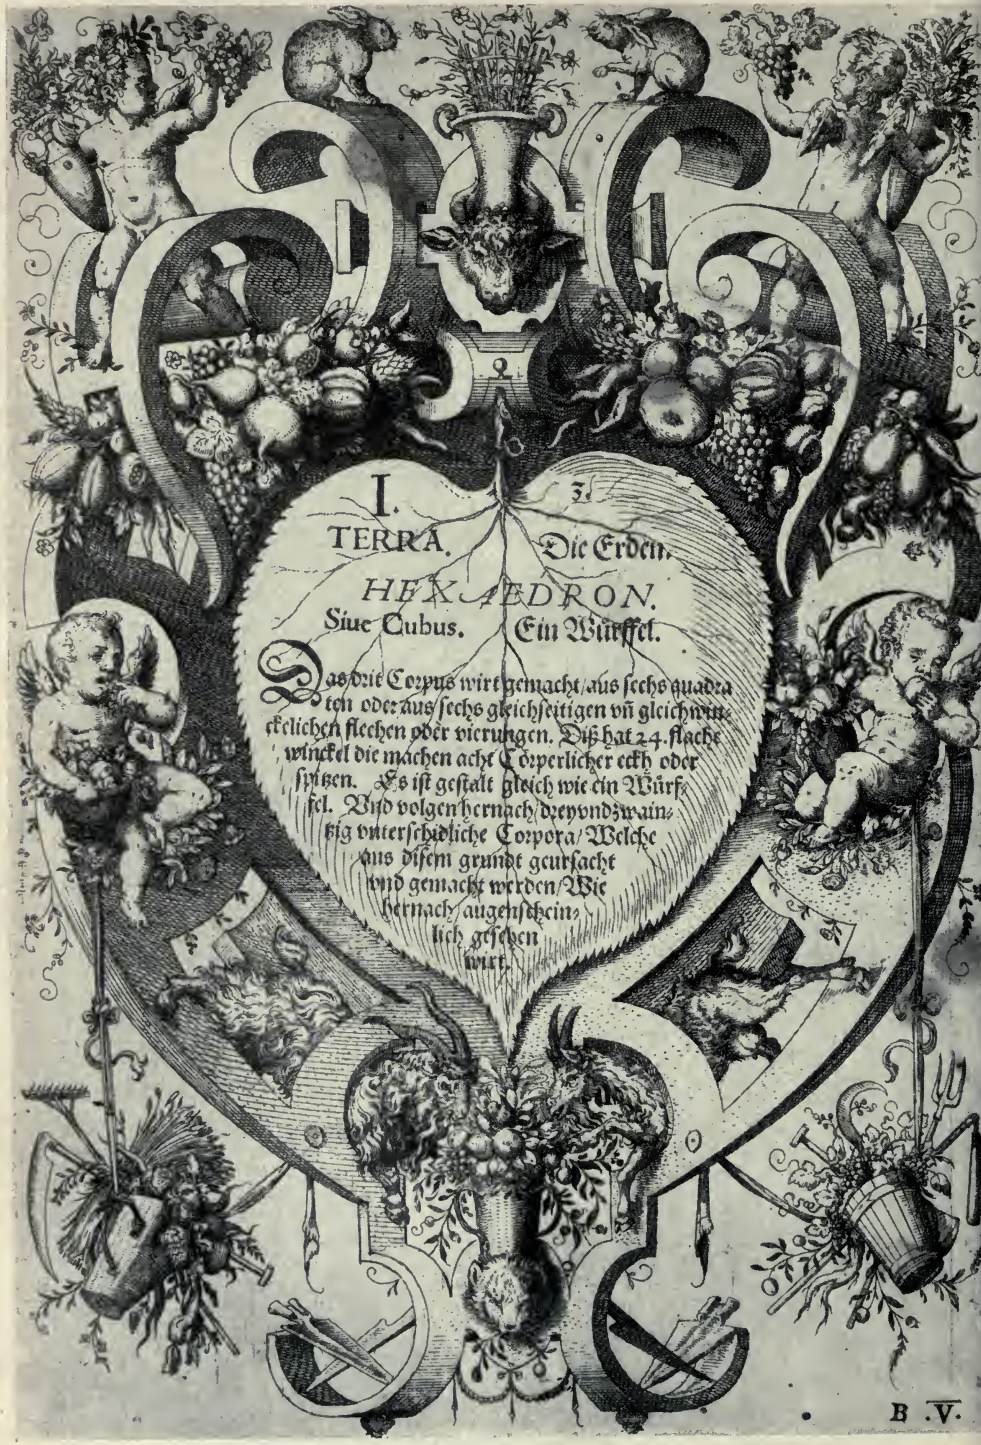 I. 3.
TERRA. Die Erden.
HEXAEDRON.
Siue Cubus. Ein Würffel.
Das drit Corpus wirt gemacht/aus sechs quadra
ten oder aus/sechs gleichseitigen vñ gleichwin⸗
ckelichen flechen oder vierungen. Diß hat 24. flache
winckel die machen acht Cörperlicher eckh oder
spitzen. Es ist gestalt gleich wie ein Würf⸗
fel. Vnd volgen hernach/dreyvndzwain⸗
tzig vnterschidliche Corpora/Welche
aus disem grundt geursacht
vnd gemacht werden/Wie
hernach/augenschein⸗
lich gesehen
wirt.
B .V.